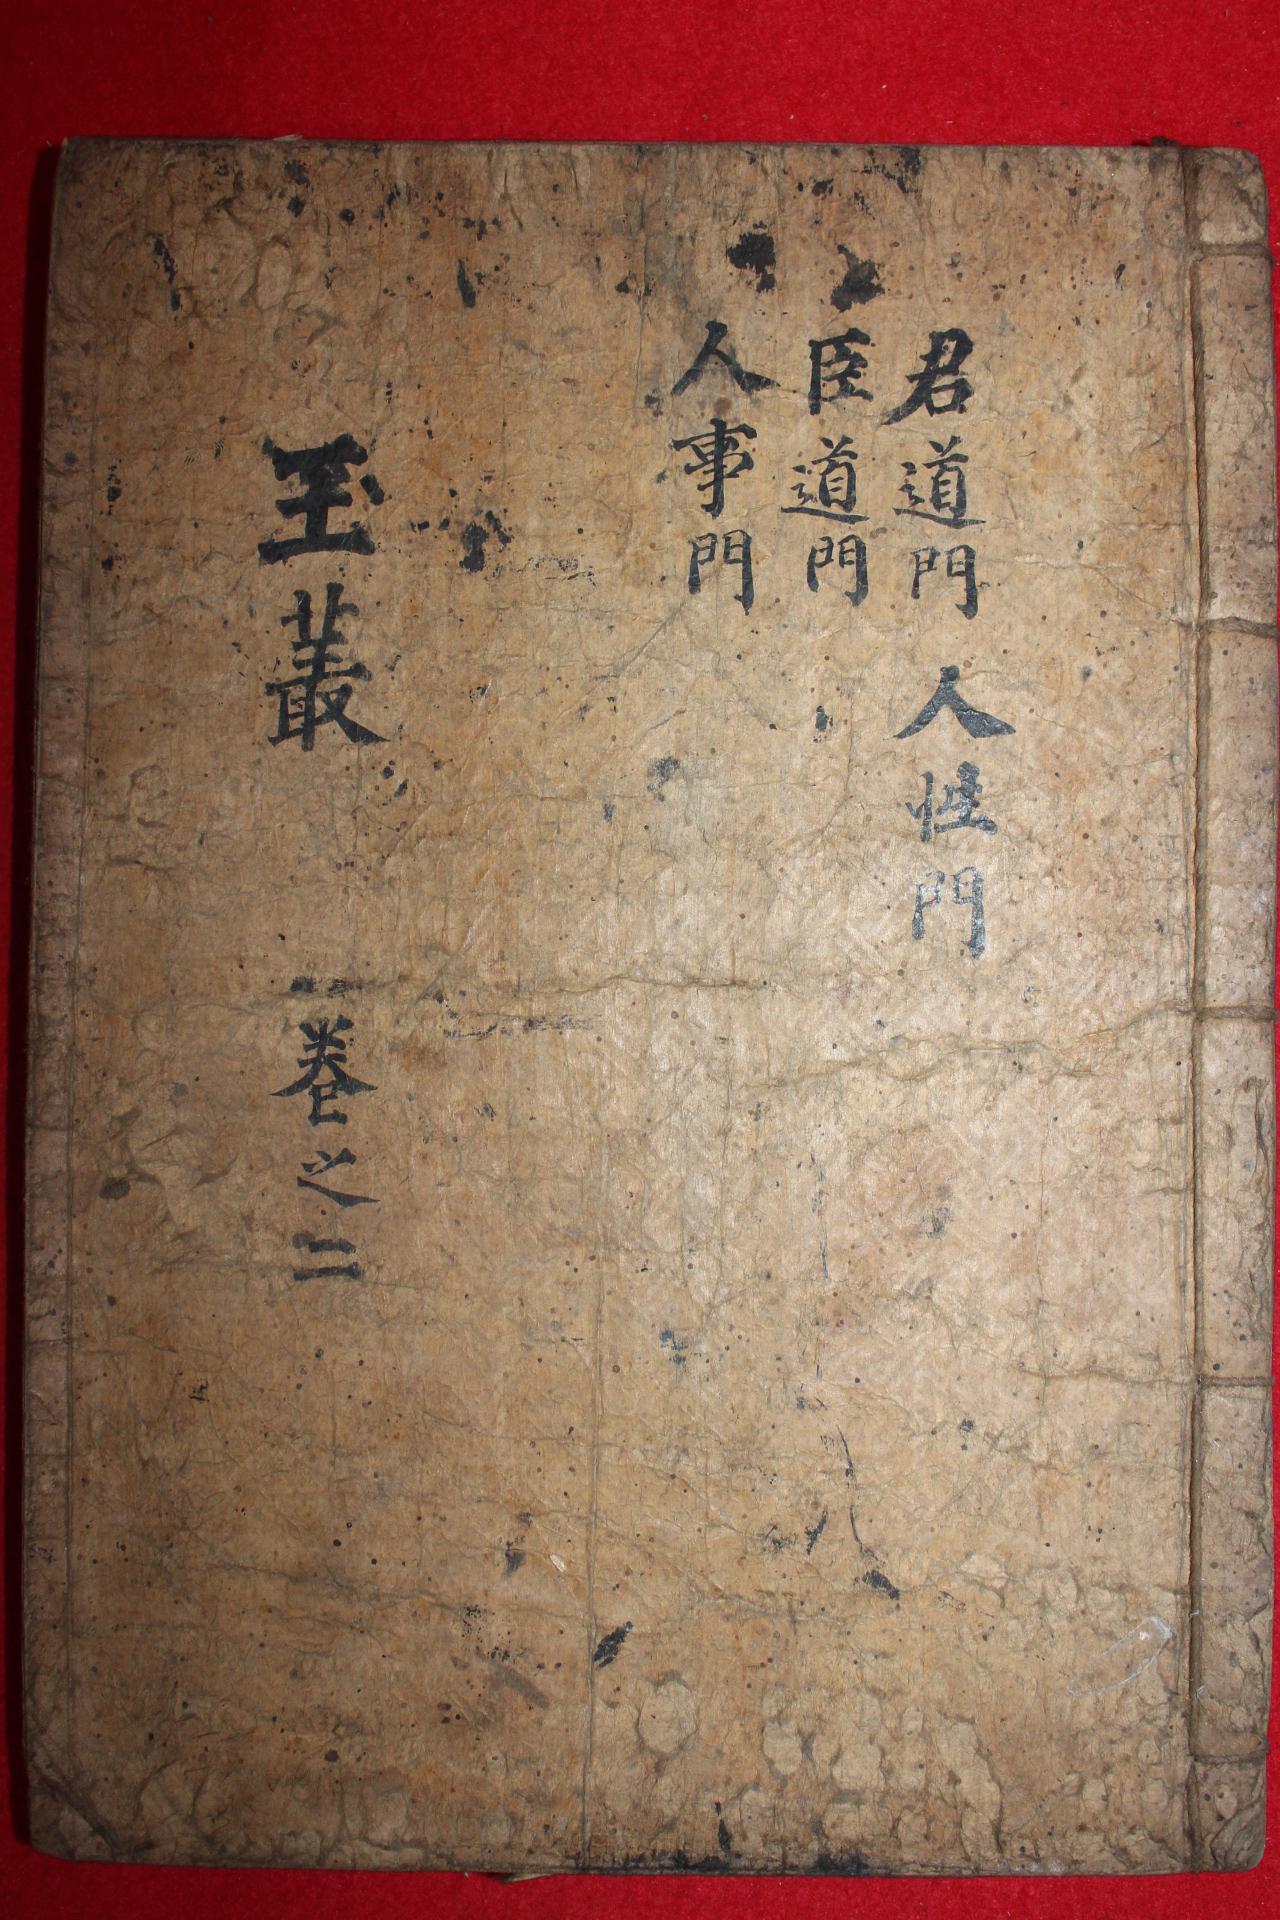 君道門 人性門
臣道門
人事門
玉叢 一卷之二